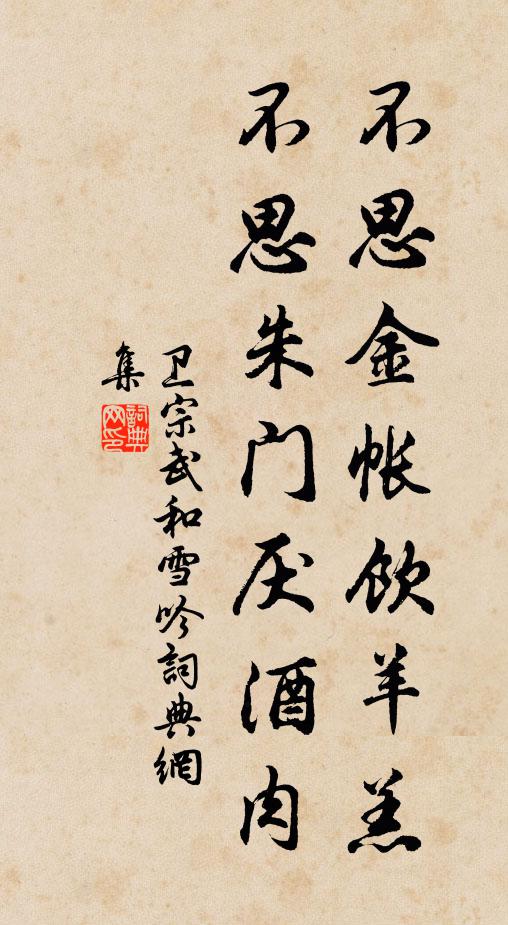 不思金帐饮羊羔
不思朱门厌酒肉
卫宗武和雪吟詞典網
集
詞典网印